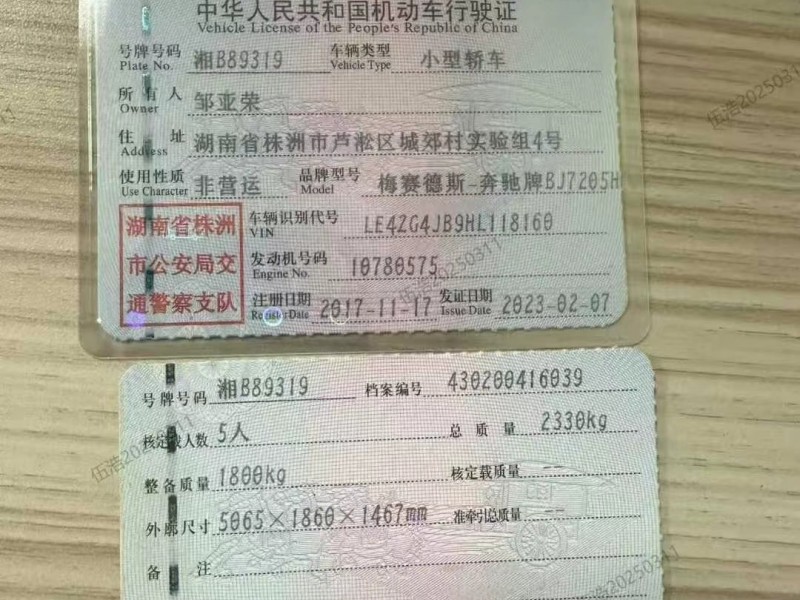 中华人民共和国机动车行驶证
Vehicle License of the People's Republic of China
号牌号码 湘B89319 车辆类型 小型轿车
Plate No. Vehicle Type
所有人 邹亚荣
Owner
住址 湖南省株洲市芦淞区城郊村实验组4号
Address
使用性质 非营运 品牌型号 梅赛德斯-奔驰牌BJ7205H
Use Character Model
湖南省株洲
市公安局交
通警察支队
车辆识别代号 LE4ZG4JB9HL118160
VIN
发动机号码 10780575
Engine No.
注册日期 2017-11-17 发证日期 2023-02-07
Register Date Issue Date
号牌号码 湘B89319 档案编号 430200416039
核定载人数 5人 总质量 2330kg
整备质量 1800kg 核定载质量 --
外廓尺寸 5065×1860×1467mm 准牵引总质量 --
备注
伍浩20250311
伍浩20250311
伍浩20250311
伍浩20250311